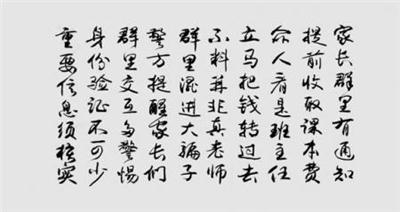 家长群里有通知
提前收取课本费
众人看是班主任
立马把钱转过去
不料并非真老师
群里混进大骗子
警方提醒家长们
群里交互多警惕
身份验证不可少
重要信息须核实